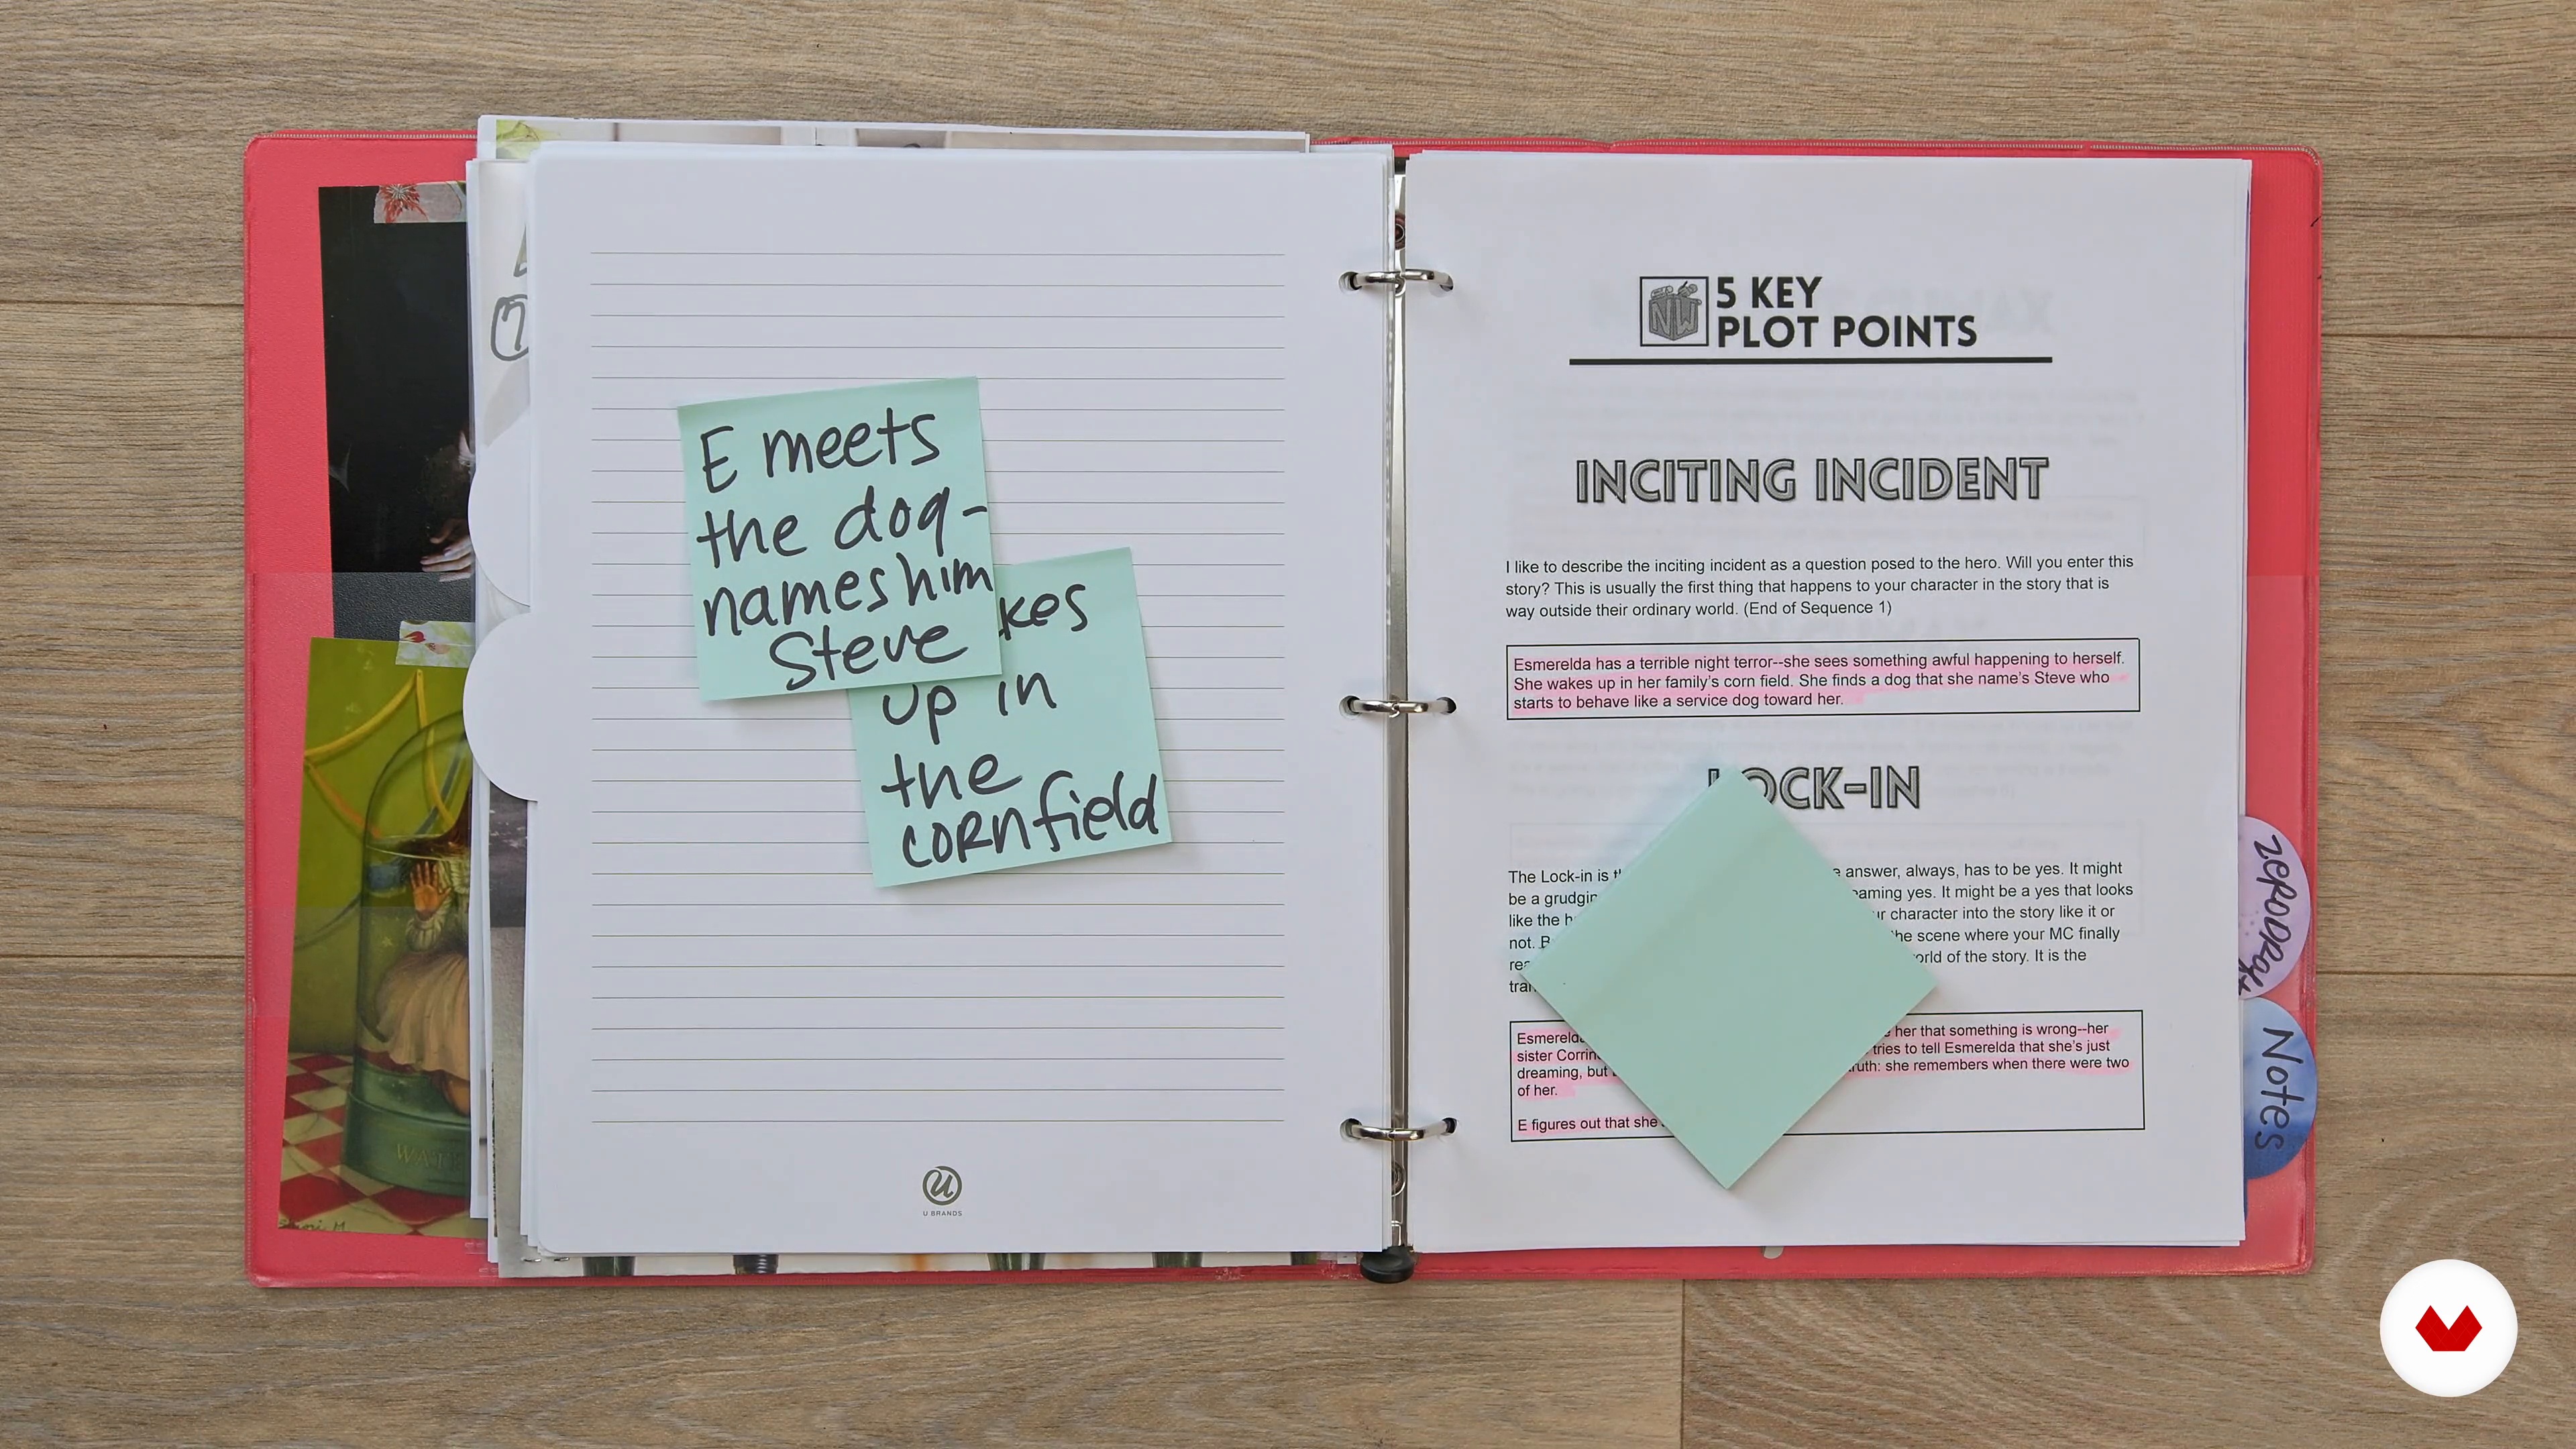 E meets
the dog-
names him
Steve
up in
the
cornfield
U BRANDS
NW
5 KEY
PLOT POINTS
INCITING INCIDENT
I like to describe the inciting incident as a question posed to the hero. Will you enter this
story? This is usually the first thing that happens to your character in the story that is
way outside their ordinary world. (End of Sequence 1)
Esmerelda has a terrible night terror--she sees something awful happening to herself.
She wakes up in her family's corn field. She finds a dog that she name's Steve who
starts to behave like a service dog toward her.
LOCK-IN
The Lock-in is answer, always, has to be yes. It might
be a yes. It might be a yes that looks
like the character into the story like it or
not. the scene where your MC finally
of the story. It is the
her that something is wrong--her
sister tries to tell Esmerelda that she's just
dreaming, but she remembers when there were two
of her.
E figures out that she
zeroDraft
Notes